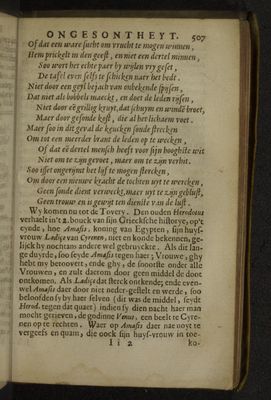 ONGESONTHEYT. 507
Of dat een ware sucht om vrucht te mogen winnen,
Hem prickelt in den geest, en niet een dertel minnen,
Soo wort het echte paer by wijlen vry geset,
De tafel even selfs te schicken naer het bedt.
Niet door een geyl bejach van onbekende spijsen,
Dat niet als bobbels maeckt, en doet de leden rijsen,
Niet door eë geilig kruyt, dat schuym en windë broet,
Maer door gesonde kost, die al het lichaem voet.
Maer soo in dit geval de keucken sonde strecken
Om tot een meerder brant de leden op te wecken,
Of dat eë dertel mensch heeft voor sijn hooghste wit
Niet om te zijn gevoet, maer om te zijn verhit.
Soo isset ongerijmt het lijf te mogen stercken,
Om door een nieuwe kracht de tochten uyt te wercken,
Geen sonde dient verweckt, maer uyt te zijn gebluscht,
Geen trouw en is gewijt ten dienste van de lust.
Wy komen nu tot de Tovery. Den ouden Herodotus
verhaelt in't 2. bouck van sijn Griecksche historye, op't
eynde, hoe Amasis, koning van Egypten, sijn huys-
vrouw Ladije van Cyrenen, niet en konde bekennen, ge-
lijck hy nochtans andere wel gebruyckte. Als dit lan-
ge duyrde, soo seyde Amasis tegen haer; Vrouwe, ghy
hebt my betoovert, ende ghy, de snootste onder alle
Vrouwen, en zult daerom door geen middel de doot
ontkomen. Als Ladije dat sterck ontkende; ende even-
wel Amasis daer door niet neder-gestelt en werde, soo
beloofden sy by haer selven (dit was de middel, seydt
Herod. tegen dat quaet) indien sy dien nacht haer man
mocht gerieven, de godinne Venus, een beelt te Cyre-
nen op te rechten. Waer op Amasis daer nae noyt te
vergeefs en quam, die oock sijn huys-vrouw in toe-
I i 2 ko-